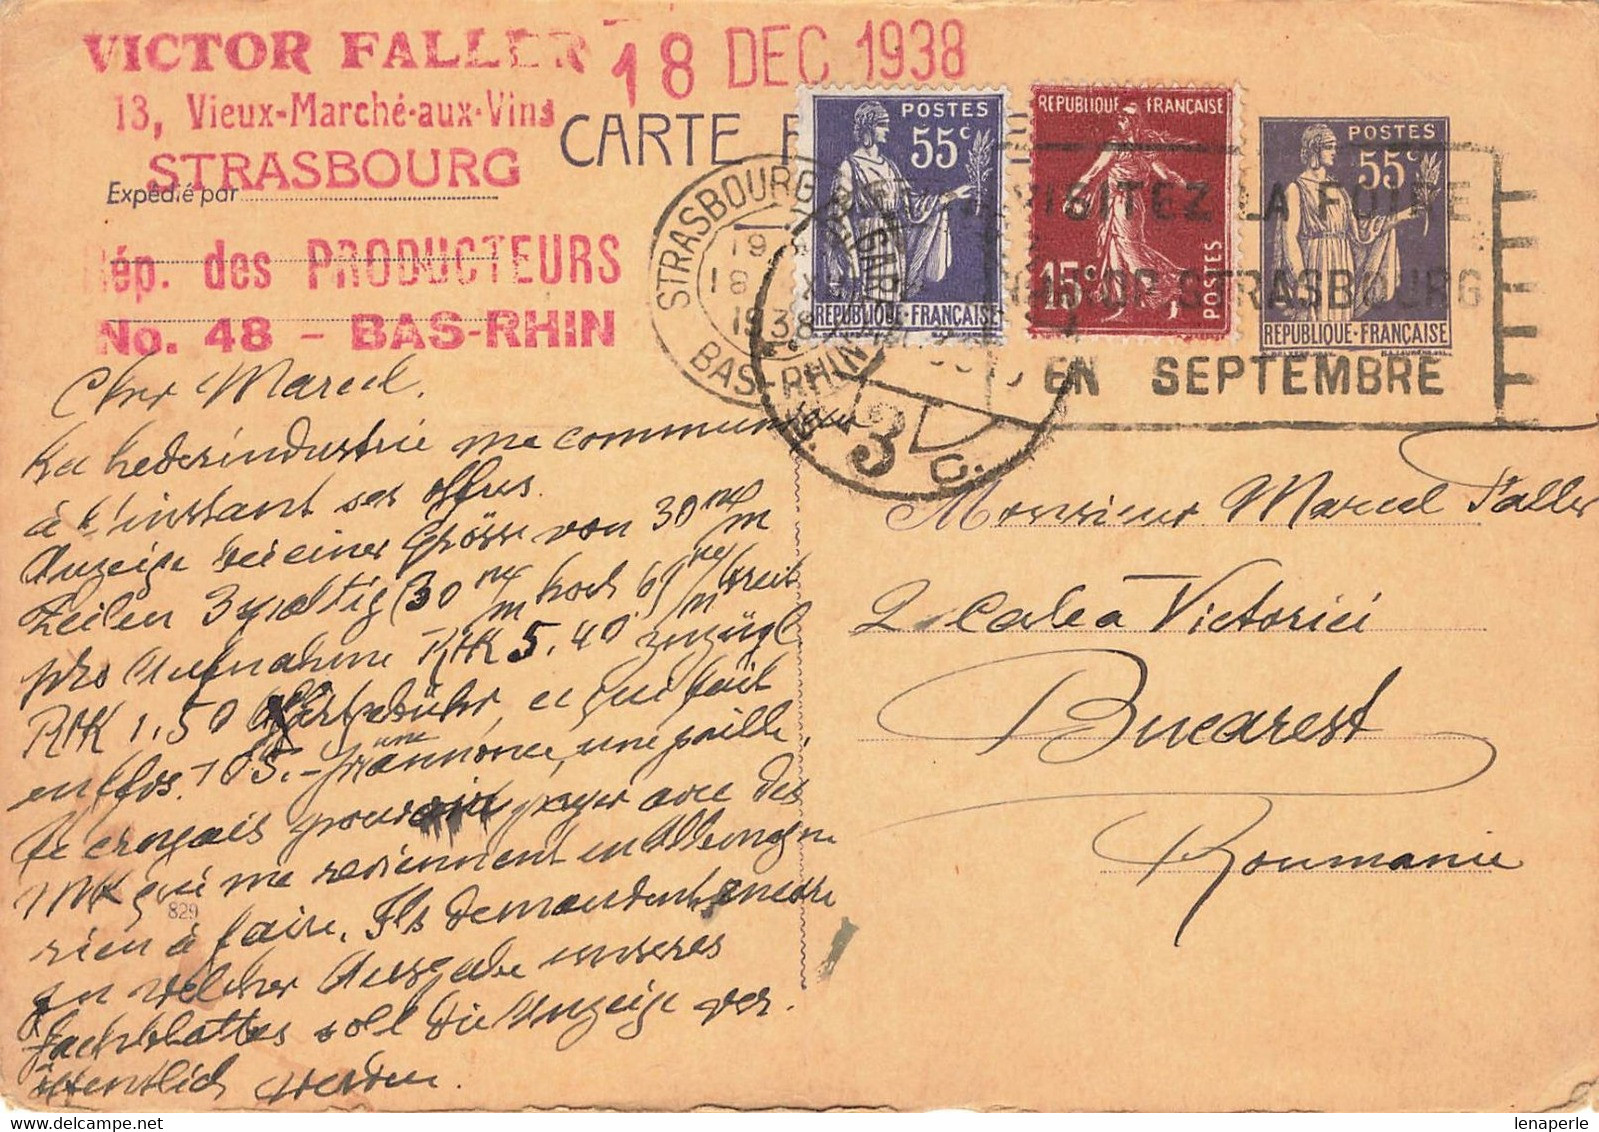 VICTOR FALLER
18 DEC 1938
13, Vieux-Marché-aux-Vins
STRASBOURG
CARTE P
Expédié par
Rép. des PRODUCTEURS
No. 48 - BAS-RHIN
POSTES
55c
REPUBLIQUE-FRANÇAISE
REPUBLIQUE FRANÇAISE
15c
POSTES
POSTES
55c
REPUBLIQUE-FRANÇAISE
STRASBOURG GARE
19
18 XII
1938
BAS-RHIN
VISITEZ LA FOIRE
STRASBOURG
EN SEPTEMBRE
3
C.
Cher Marcel.
La Lederindustrie me communique
à l'instant ses offres.
Anzeige bei einer Grösse von 30 m/m
Zeilen 3spaltig (30 m/m hoch 65 m/m breit
pro Aufnahme RMK 5.40 zuzügl
RMK 1.50 gebühr, ce qui fait
en ffrs. 105.- pr une annonce, une paille.
Je croyais pouvoir payer avec des
RMK qui me reviennent en Allemagne
rien à faire. Ils demandent encore
in welcher Ausgabe unseres
Fachblattes soll die Anzeige ver-
öffentlich werden.
829
Monsieur Marcel Faller
2 Calea Victoriei
Bucarest
Roumanie
lenaperle